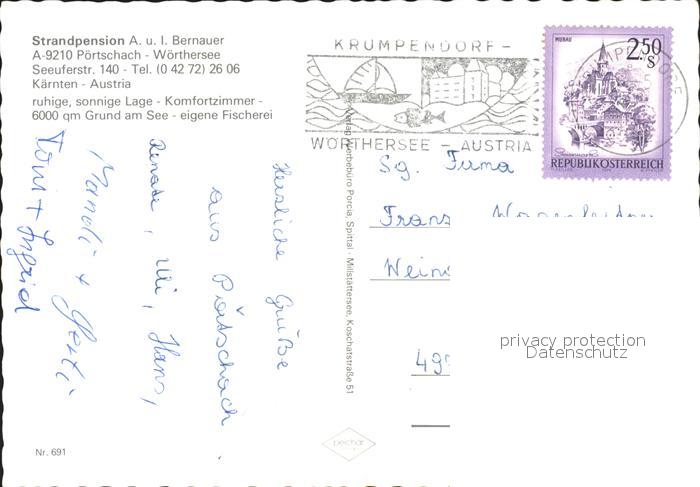 Strandpension A. u. I. Bernauer
A-9210 Pörtschach - Wörthersee
Seeuferstr. 140 - Tel. (0 42 72) 26 06
Kärnten - Austria
ruhige, sonnige Lage - Komfortzimmer -
6000 qm Grund am See - eigene Fischerei
Herzliche Grüße
aus Pörtschach
Renate, Uli, Hans,
Mandi + Gerti
Toni + Ingrid
Nr. 691
Verlag Werbebüro Porcia, Spittal - Millstättersee, Koschatstraße 51
KRUMPENDORF -
WÖRTHERSEE - AUSTRIA
MURAU
2.50
S
REPUBLIK ÖSTERREICH
Sg. Firma
Franz
Wein
49
privacy protection
Datenschutz